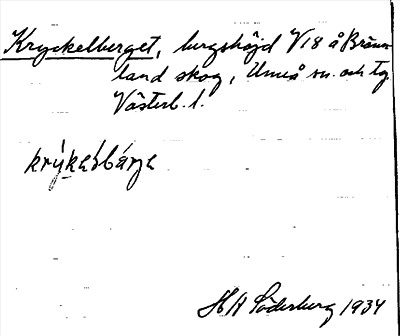 Kryckelberget, bergshöjd V18 å Bränn-
land skog, Umeå sn. och tg.
Västerb. l.
H A Söderberg 1934